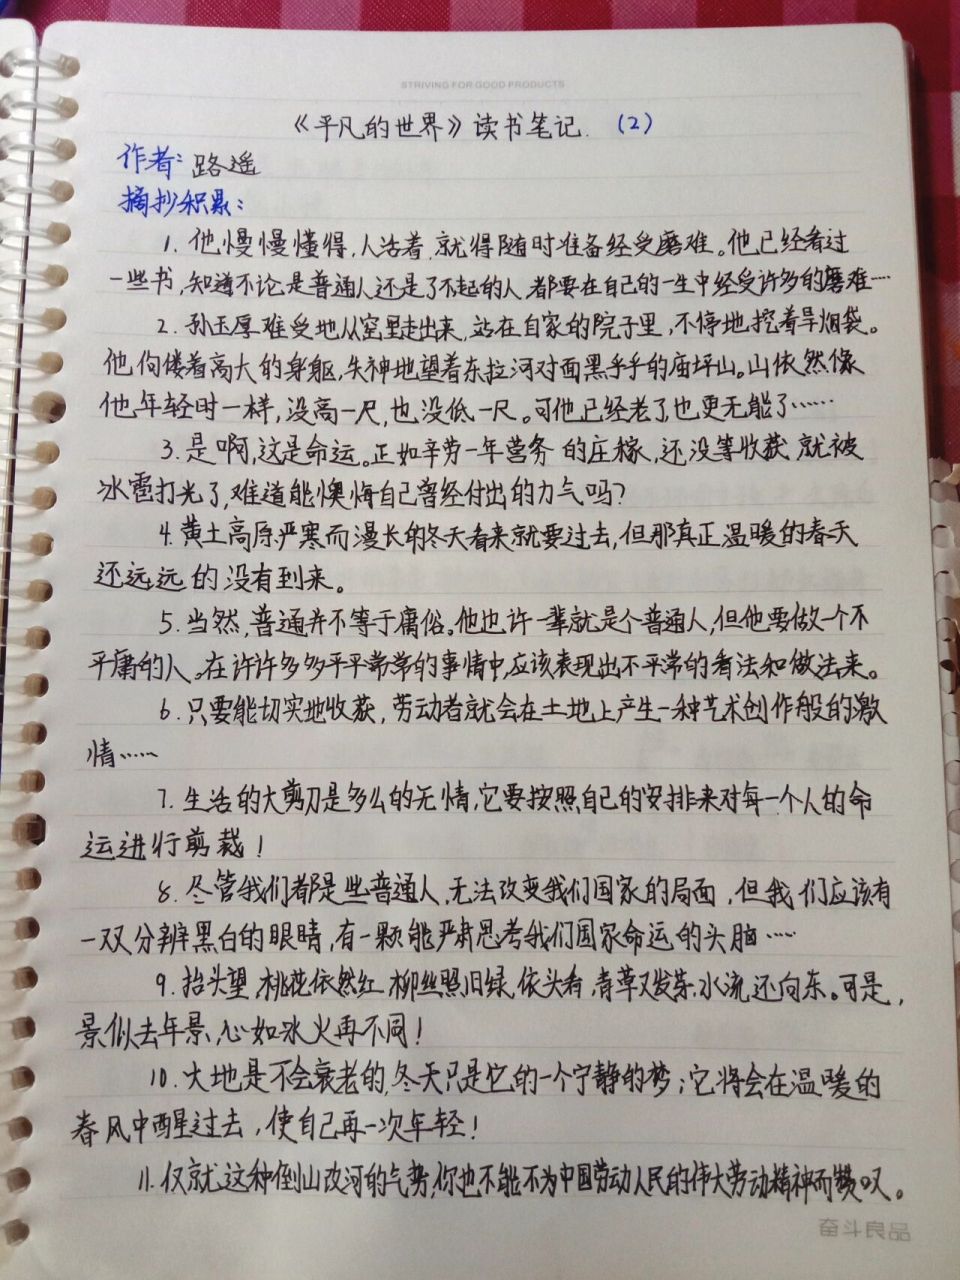 STRIVING FOR GOOD PRODUCTS
《平凡的世界》读书笔记. (2)
作者: 路遥
摘抄积累:
1. 他慢慢懂得,人活着,就得随时准备经受磨难。他已经看过
一些书,知道不论是普通人还是了不起的人,都要在自己的一生中经受许多的磨难…
2. 孙玉厚难受地从窑里走出来,站在自家的院子里,不停地挖着旱烟袋。
他佝偻着高大的身躯,失神地望着东拉河对面黑乎乎的庙坪山。山依然像
他年轻时一样,没高一尺,也没低一尺。可他已经老了,也更无能了……
3. 是啊,这是命运。正如辛劳一年营务的庄稼,还没等收获就被
冰雹打光了,难道能懊悔自己曾经付出的力气吗?
4. 黄土高原严寒而漫长的冬天看来就要过去,但那真正温暖的春天
还远远的没有到来。
5. 当然,普通并不等于庸俗。他也许一辈就是个普通人,但他要做一个不
平庸的人。在许许多多平平常常的事情中,应该表现出不平常的看法和做法来。
6. 只要能切实地收获,劳动者就会在土地上产生一种艺术创作般的激
情……
7. 生活的大剪刀是多么的无情,它要按照自己的安排来对每一个人的命
运进行剪裁!
8. 尽管我们都是些普通人,无法改变我们国家的局面,但我们应该有
一双分辨黑白的眼睛,有一颗能严肃思考我们国家命运的头脑…
9. 抬头望,桃花依然红,柳丝照旧绿,依头看,青草又发芽,水流还向东。可是,
景似去年景,心如冰火再不同!
10. 大地是不会衰老的,冬天只是它的一个宁静的梦;它将会在温暖的
春风中醒过去,使自己再一次年轻!
11. 仅就这种倒山改河的气势,你也不能不为中国劳动人民的伟大劳动精神而赞叹。
奋斗良品